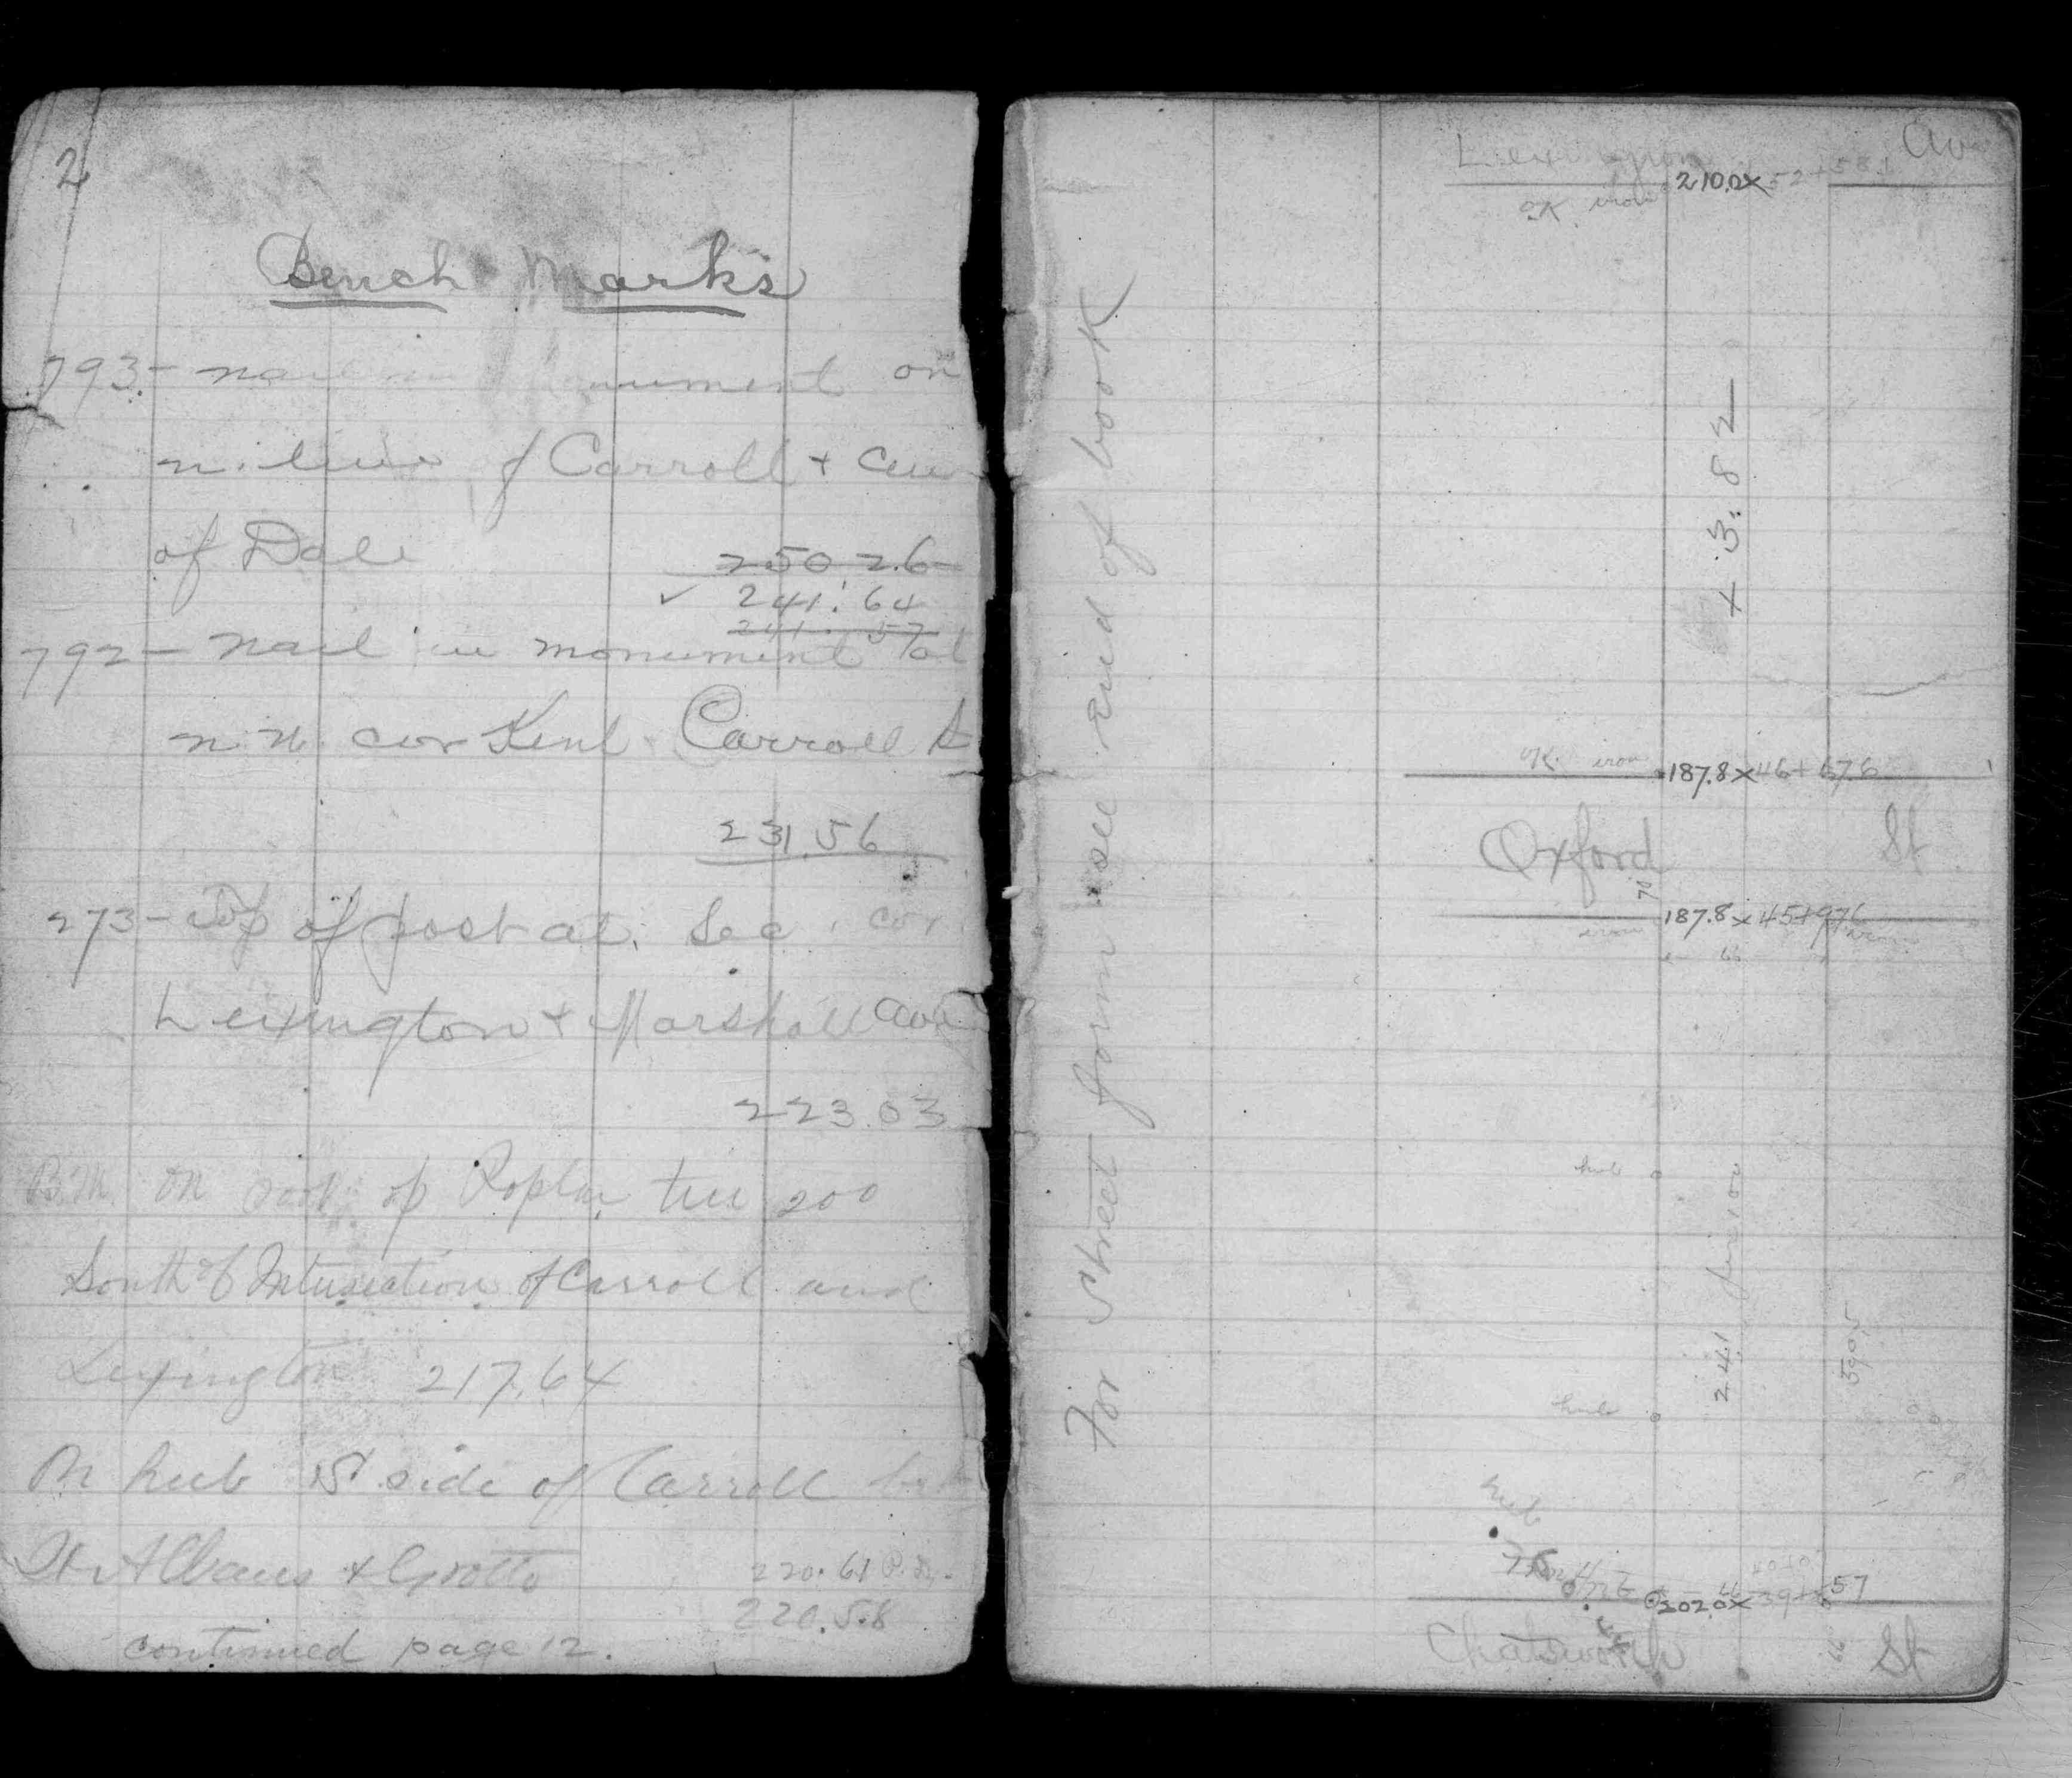 2
Bench Marks
793- nail monument on
n. line of Carroll + cen
of Dale 250 26
✓ 241.64
241. 57
792- nail in monument at
n w. cor Kent Carroll St
231.56
273- Top of post at. Se cor.
Lexington + Marshall ave
223.03
B.M. on root of Poplar tree 200
South of Intersection of Carroll and
Lexington 217.64
On hub side of Carroll bet
St Albans + Grotto 220.61
220.58
continued page 12.
For street form see end of book
Lexington Av
210.0x 52+58.1
OK iron
+ 3.82
OK iron 187.8x 46+67.6
Oxford St
70
187.8x 45+97.6
iron iron
66
hub
241 per 100
390.5
hub
hub
202.0x 39+ 57
Chatsworth St
66